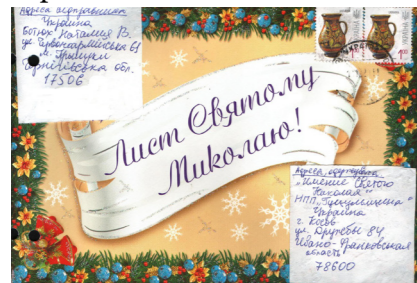 Адреса відправника
Україна
Ботюк Наталия В.
ул Червонгармійська 61
м. Прилуки
Чернігівська обл.
17506
Лист Святому
Миколаю!
Адреса одержувача
"Имение Святого
Николая"
НПП "Гуцулищина"
Украина
г. Косів
ул Дружбы 84
Ивано-Франковская
область
78600